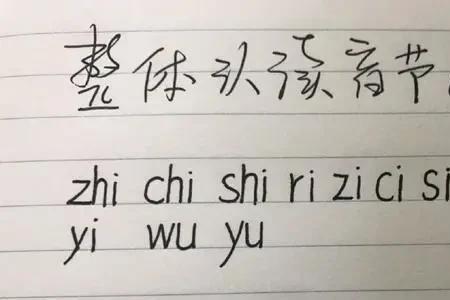 整体认读音节
zhi chi shi ri zi ci si
yi wu yu